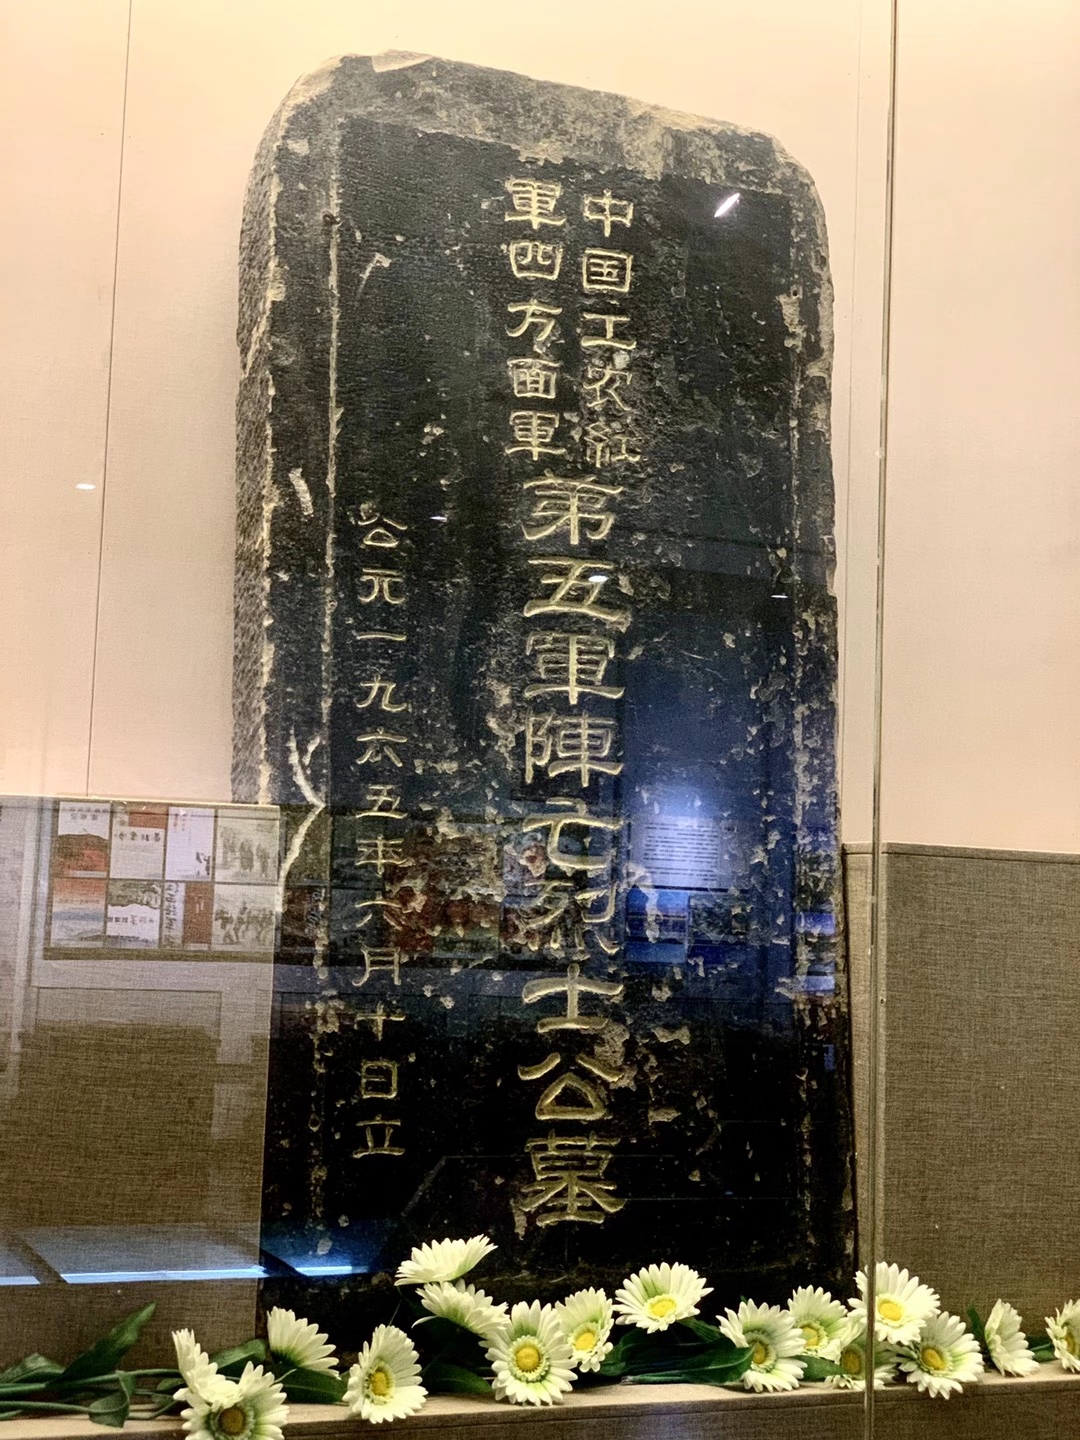 中国工农红
軍四方面軍
第五軍陣亡烈士公墓
公元一九六五年六月十日立